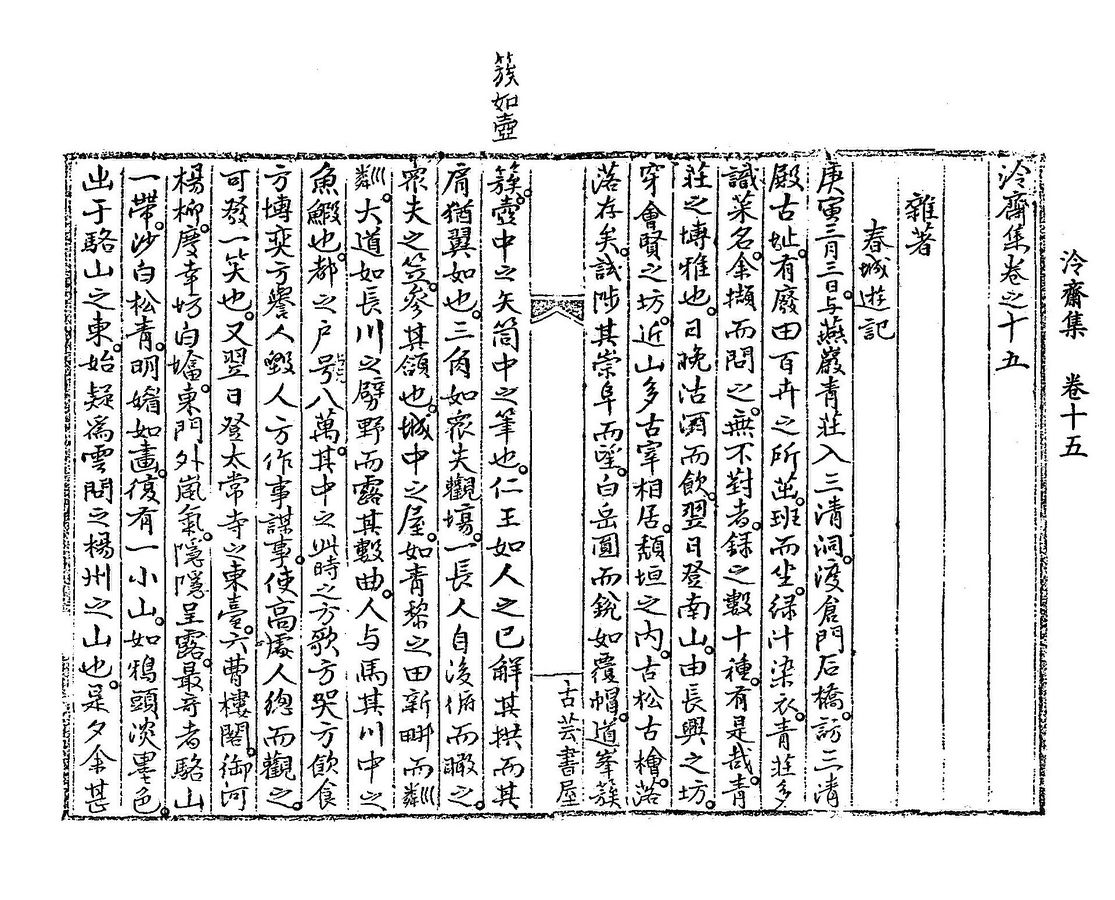 泠齋集 卷十五
泠齋集卷之十五
雜著
春城遊記
庚寅三月三日。与燕巖青莊入三清洞。渡倉門石橋。訪三清
殿古址。有廢田百卉之所茁。班而坐。緑汁染衣。青莊多
識菜名。余擷而問之。無不對者。録之數十種。有是哉。青
莊之博雅也。日晚沽酒而飲。翌日登南山。由長興之坊。
穿會賢之坊。近山多古宰相居。頹垣之内。古松古檜。落
落存矣。試陟其崇阜而望。白岳圓而銳如覆帽。道峯簇
古芸書屋
簇如壺
簇。壺中之矢筒中之筆也。仁王如人之已解其拱而其
肩猶翼如也。三角如衆夫觀場。一長人自後俯而瞰之。
衆夫之笠。參其頷也。城中之屋。如青黎之田新畊而粼
粼。大道如長川之劈野而露其數曲。人与馬其川中之
魚鰕也。都之戶号八萬。其中之此時之方歌方哭方飲食
方博奕方譽人毀人方作事謀事。使高處人總而觀之。
可發一笑也。又翌日登太常寺之東臺。六曹樓閣。御河
楊柳。度幸坊白墖。東門外嵐氣。隱隱呈露。最奇者駱山
一帶。沙白松青。明媚如畫。復有一小山。如鴉頭淡墨色。
出于駱山之東。始疑爲雲問之楊州之山也。是夕余甚